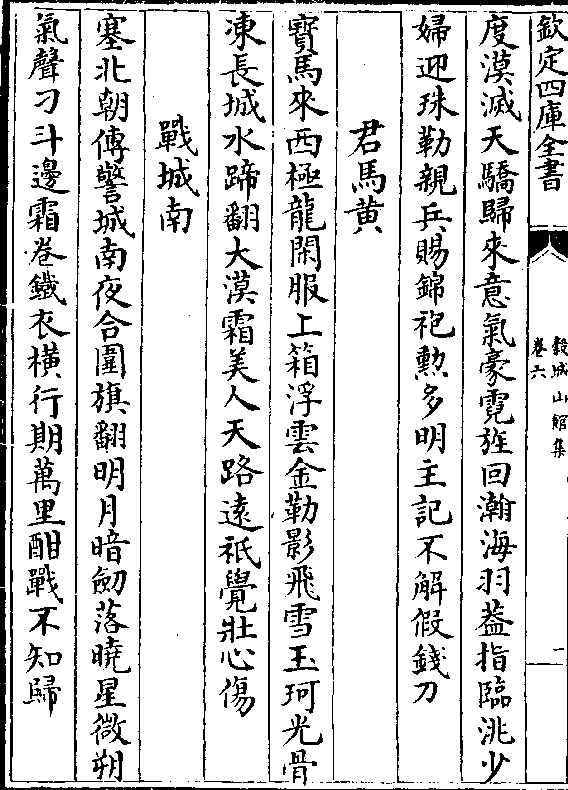 欽定四庫全書
榖城山館集
卷六
一
度漠滅天驕歸來意氣豪霓旌回瀚海羽葢指臨洮少
婦迎珠勒親兵賜錦袍勲多明主記不解假錢刀
君馬黄
寶馬來西極龍閑服上箱浮雲金勒影飛雪玉珂光骨
凍長城水蹄翻大漠霜美人天路遠祇覺壯心傷
戰城南
塞北朝傳警城南夜合圍旗翻明月暗劒落曉星微朔
氣聲刁斗邊霜卷鐵衣橫行期萬里酣戰不知歸